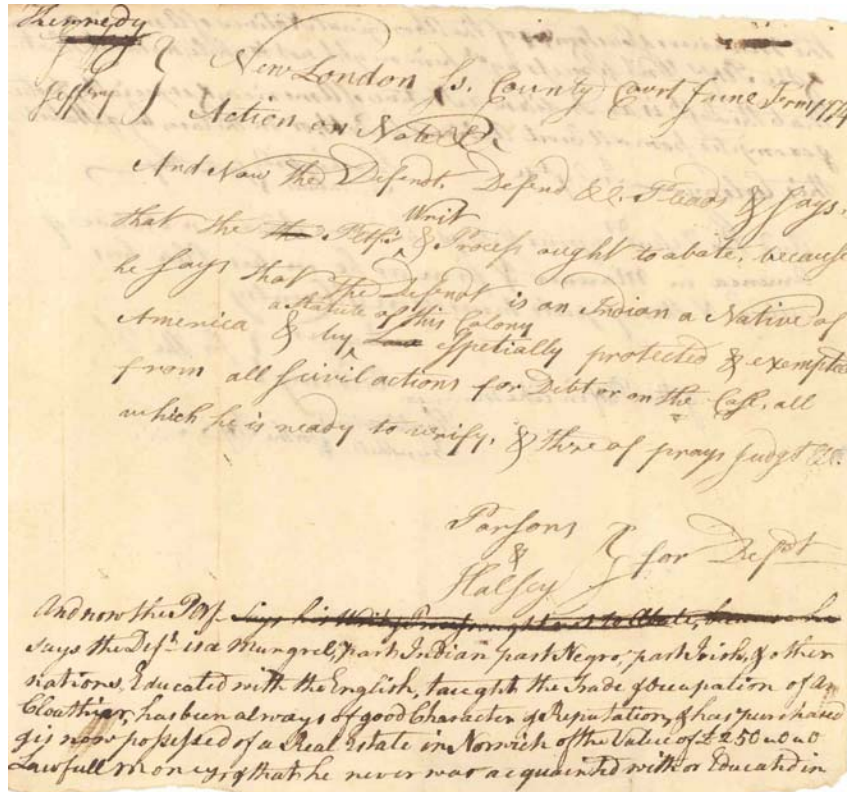 Kennedy
Jeffry
New London Ss. County Court June Term 1774
Action on Note &c.
And Now the Defendt. Defend &c. Pleads & Says,
that the the Pltfs. Writ & Process ought to abate, because
he Says that the Defendt is an Indian a Native of
America & by Law a Statute of this Colony espetially protected & exempted
from all Civil actions for Debt or on the Case, all
which he is ready to verify, & there of prays Judgt &c.
Parsons
&
Halsey
for Defdt
And now the Plf. Says his Writ & Process ought not to Abate, because he
says the Deft. is a Mungrel, part Indian part Negro, part Irish, & other
nations, Educated with the English, taught the Trade & occupation of a
Cloathier, has been always of good Character & Reputation, & has purchased
& is now possessed of a Real Estate in Norwich of the Value of £250 " 0 " 0
Lawfull money, & that he never was acquainted with or Educated in